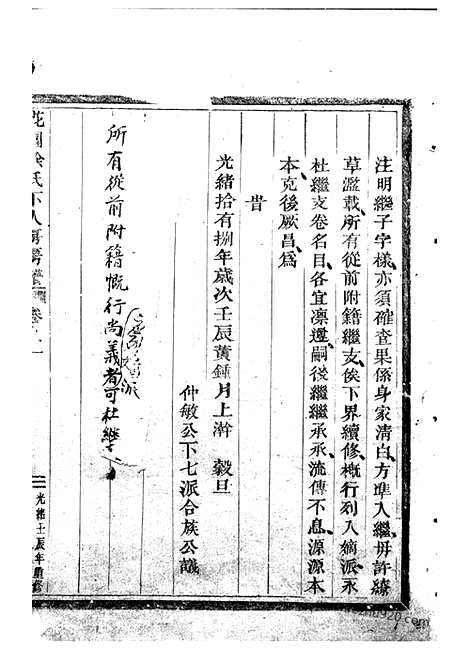 注明繼子字樣亦須確查果係身家清白方準入繼毋許續
草濫載所有從前附籍繼支俟下界續修概行列入嫡派永
杜繼支卷名目各宜凛遵嗣後繼繼承承流傳不息源源本
本克後厥昌為
昔
光緒拾有捌年歲次壬辰黃鍾月上澣 穀旦
仲敏公下七派合族公議
所有從前附籍慨行尚義者可杜繼
派
氏下人房譜卷一
光緒壬辰年重修